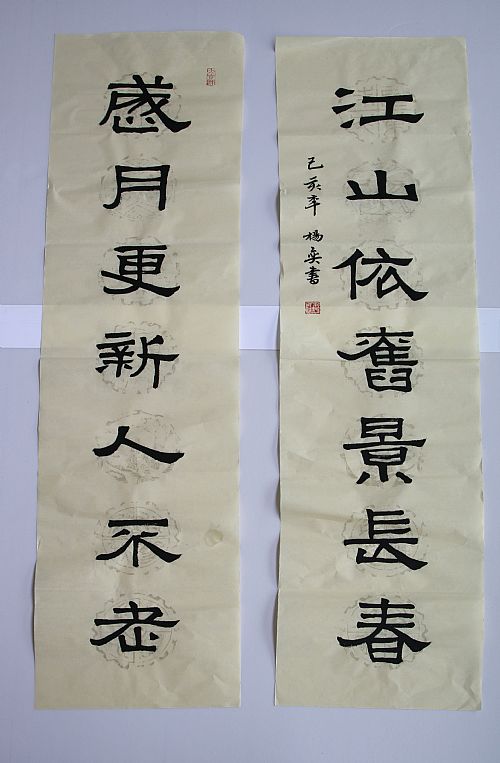 歲月更新人不老
江山依舊景長春
己亥年 楊奕書